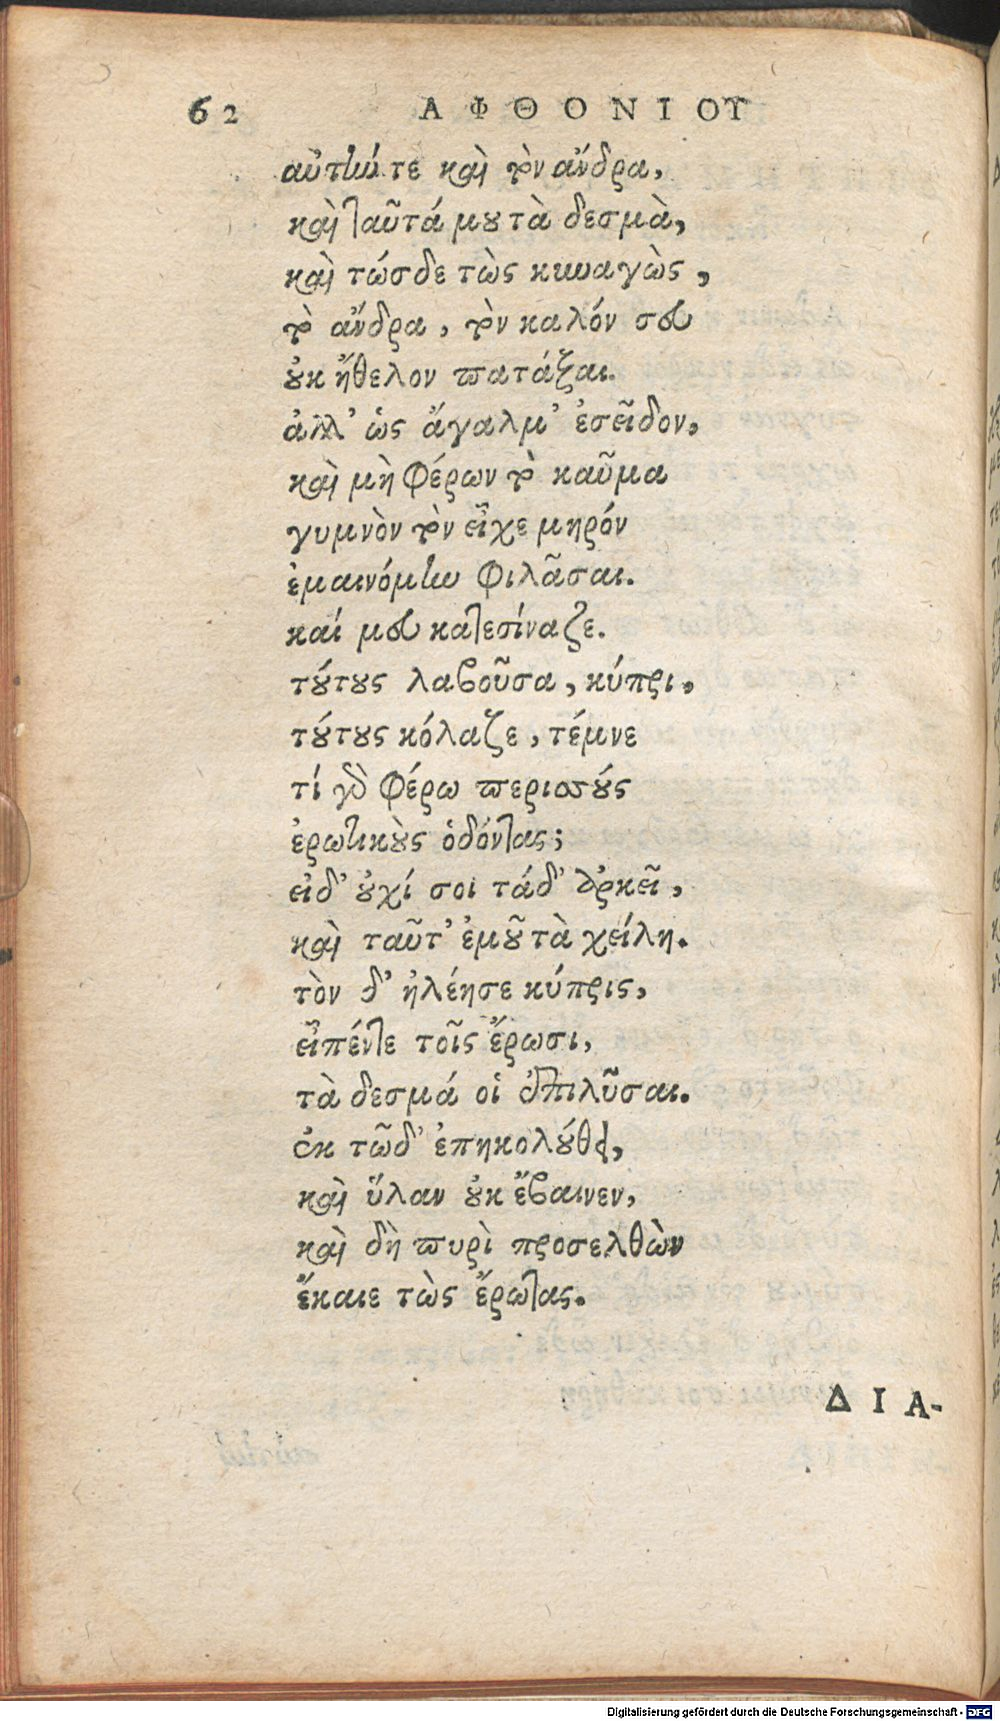 62 ΑΦΘΟΝΙΟΥ
αὐτήν τε καὶ τὸν ἄνδρα,
καὶ ταῦτά μου τὰ δεσμὰ,
καὶ τώσδε τὼς κυναγὼς,
τὸ ἄνδρα, τὸν καλόν σευ
οὐκ ἤθελον πατάξαι.
ἀλλ' ὡς ἄγαλμ' ἐσεῖδον,
καὶ μὴ φέρων τὸ καῦμα
γυμνὸν τὸν εἶχε μηρόν
ἐμαινόμην φιλᾶσαι.
καί μευ κατεσίναζε.
τούτους λαβοῦσα, κύπρι,
τούτους κόλαζε, τέμνε
τί γὰρ φέρω περισσούς
ἐρωτικοὺς ὀδόντας;
εἰδ' οὐχί σοι τάδ' ἀρκεῖ,
καὶ ταῦτ' ἐμοῦ τὰ χείλη.
τὸν δ' ἠλέησε κύπρις,
εἶπέν τε τοῖς ἔρωσι,
τὰ δεσμά οἱ ἐπιλῦσαι.
ἐκ τῶδ' ἐπηκολούθει,
καὶ ὕλαν οὐκ ἔβαινεν,
καὶ δὴ πυρὶ προσελθὼν
ἔκαιε τὼς ἔρωτας.
ΔΙΑ-
Digitalisierung gefördert durch die Deutsche Forschungsgemeinschaft - DFG